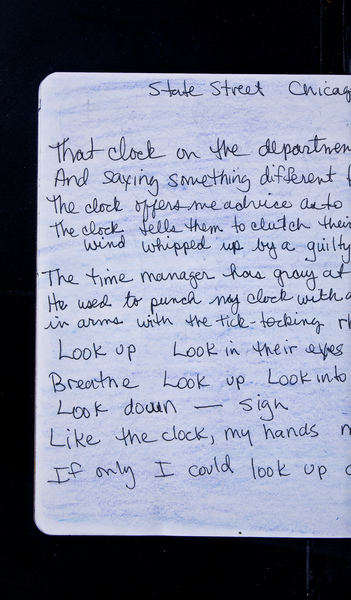 State Street Chicag
That clock on the departmen
And saying something different f
The clock offers me advice as to
The clock tells them to clutch their
wind whipped up by a guilty
The time manager has gray at
He used to punch my clock with a
in arms with the tick-tocking rh
Look up Look in their eyes
Breathe Look up Look into
Look down — sigh
Like the clock, my hands n
If only I could look up